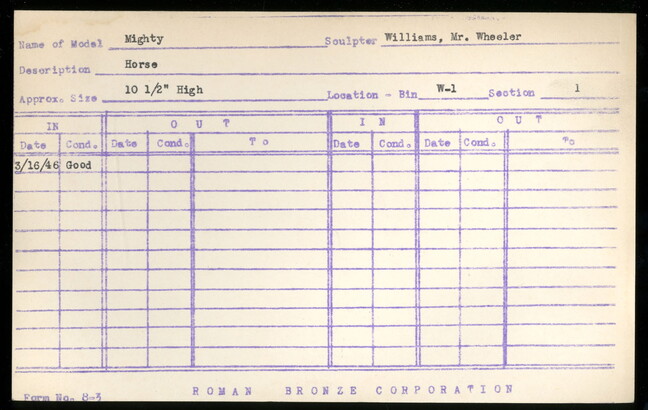 Name of Model Mighty Sculptor Williams, Mr. Wheeler
Description Horse
Approx. Size 10 1/2" High Location - Bin W-1 Section 1
IN OUT IN OUT
Date Cond. Date Cond. To Date Cond. Date Cond. To
3/16/46 Good
Form No. 8-3 ROMAN BRONZE CORPORATION